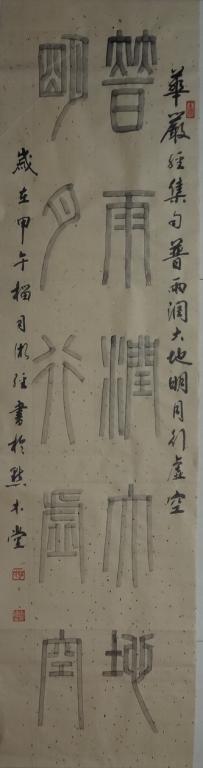 華嚴經集句普雨潤大地明月行虛空
普雨潤大地
明月行虛空
歲在甲午榴月湘經書於默木堂